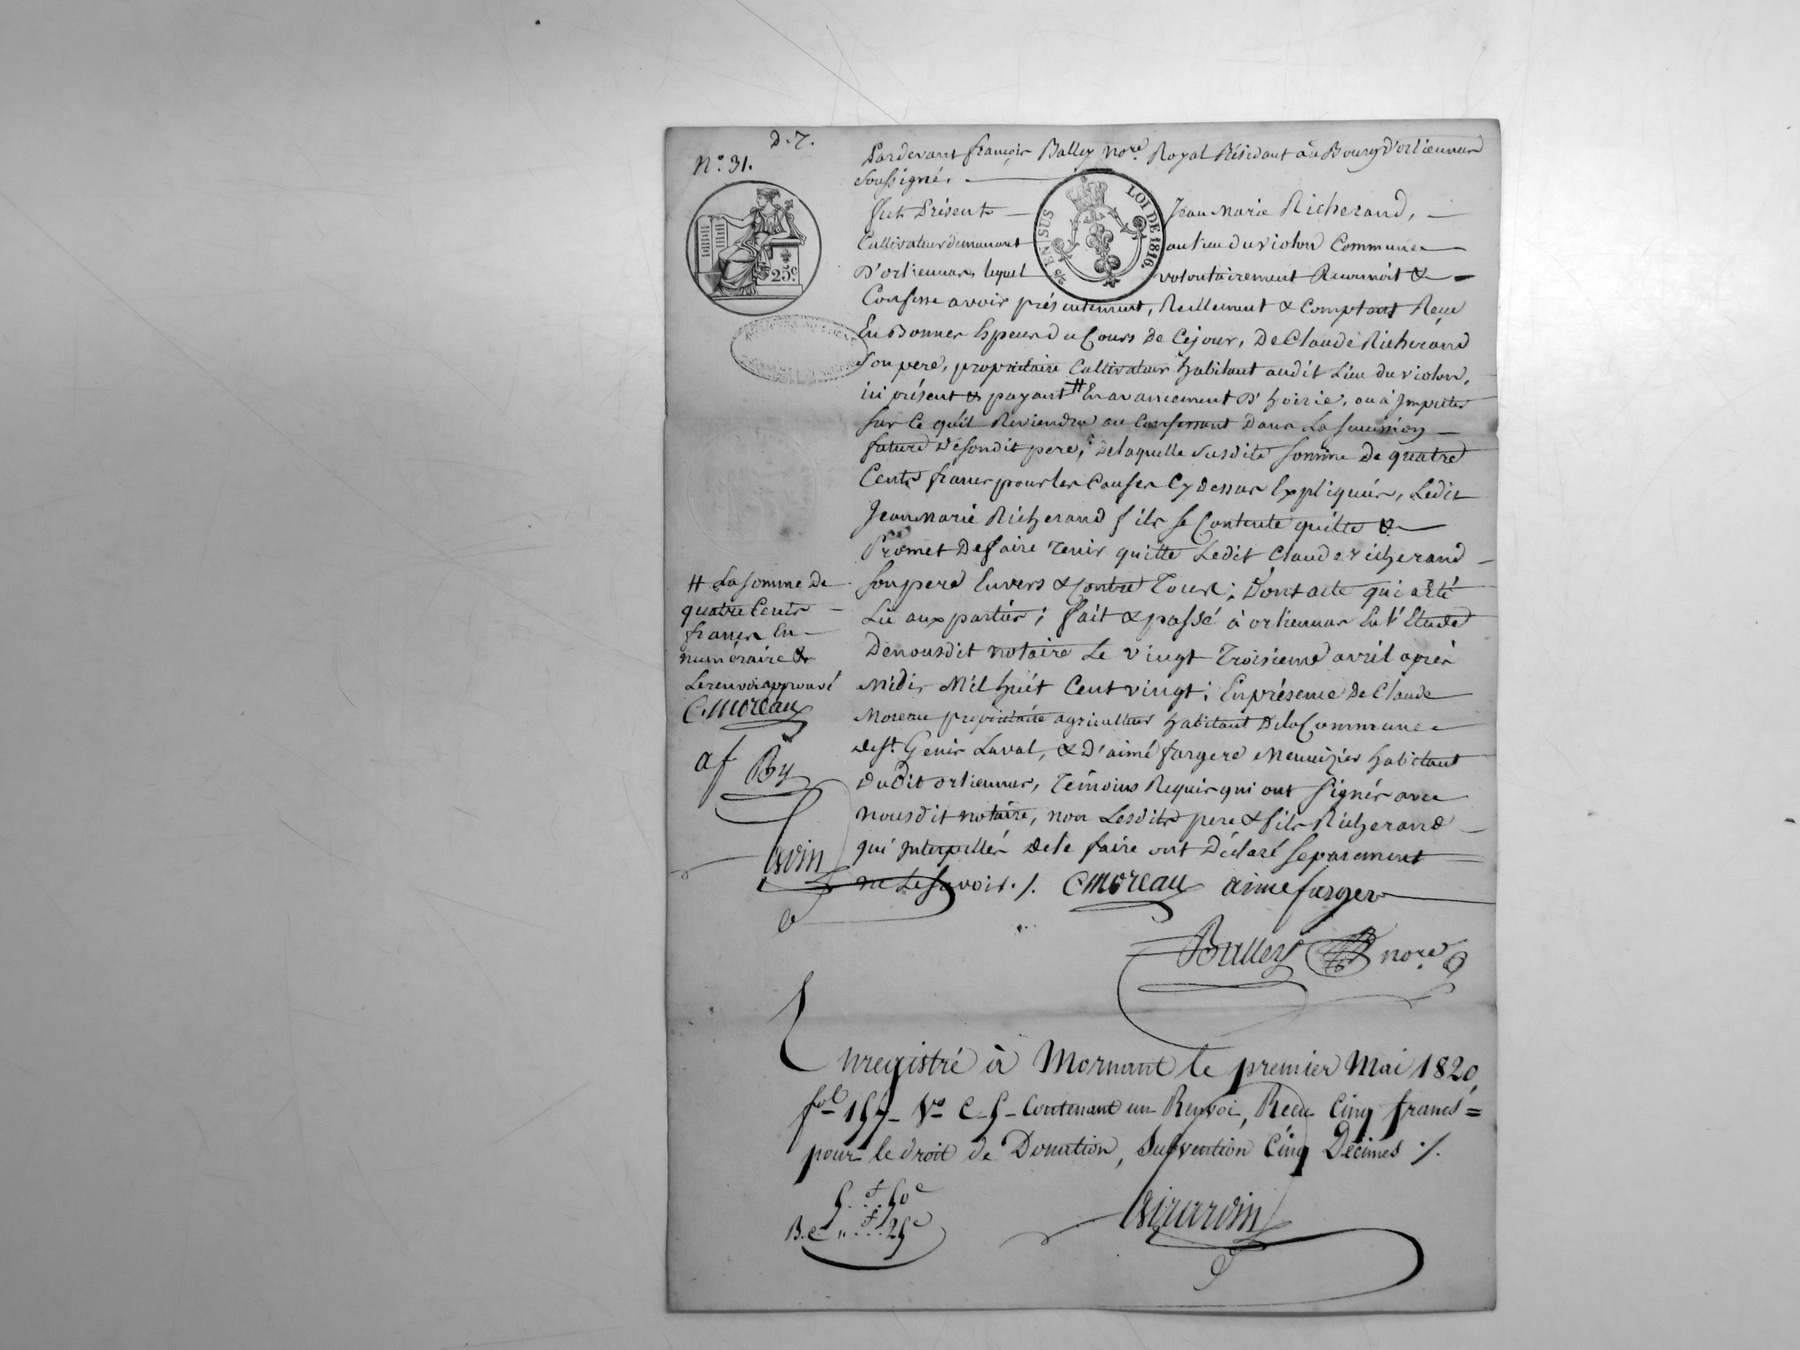 D. 7.
N.° 31.
Pardevant françois Balley no.re Royal Résidant au Bourg d'orliennas
Soussigné.
fut Présent Jean Marie Richerand,
Cultivateur demeurant au Lieu du violon Commune
D'orliennas, lequel volontairement Reconnoit &
Confesse avoir présentement, Réellement & Comptant Reçu
En Bonnes Especes du Cours de Cejour, De Claude Richerand
Son pere, propriétaire Cultivateur habitant audit Lieu du violon,
ici présent & payant # En avancement D'hoirie, ou à Imputer
sur Ce qu'il Reviendra au Confessant Dans La succession
future De sondit pere; De laquelle Susdite somme De quatre
Cents francs pour les Causes Cy Dessus Expliquées, Ledit
Jean Marie Richerand fils se Contente quitte &
Promet De faire tenir quitte Ledit Claude richerand
Son pere Envers & Contre Tous; Dont acte qui a été
Lu aux parties; fait & passé à orliennas En l'Etude
De nousdit notaire Le vingt Troisieme avril après
Midi, Mil huit Cent vingt; En présence De Claude
Moreau propriétaire agriculteur habitant De la Commune
de st. Genis Laval, & D'aimé fargere Menuizier habitant
Dudit orliennas, Témoins Requis qui ont signés avec
nousdit notaire, non Lesdits pere & fils Richerand
qui Interpellés de le faire ont Déclaré Séparément
ne Le Savoir. /. C moreau aime farger
Balley no.re
# La somme de
quatre Cents
francs En
numéraire &
Le renvoi approuvé
C. moreau
af By
LOI DE 1816.
EN SUS
25.c
Enregistré à Mornant le premier Mai 1820,
fol. 157 V.o C. 5 Contenant un Renvoi, Reçu Cinq francs
pour le droit de Donation, Subvention Cinq Décimes ./.
5.f 50c
B.et ,, .f 25c
Girardin